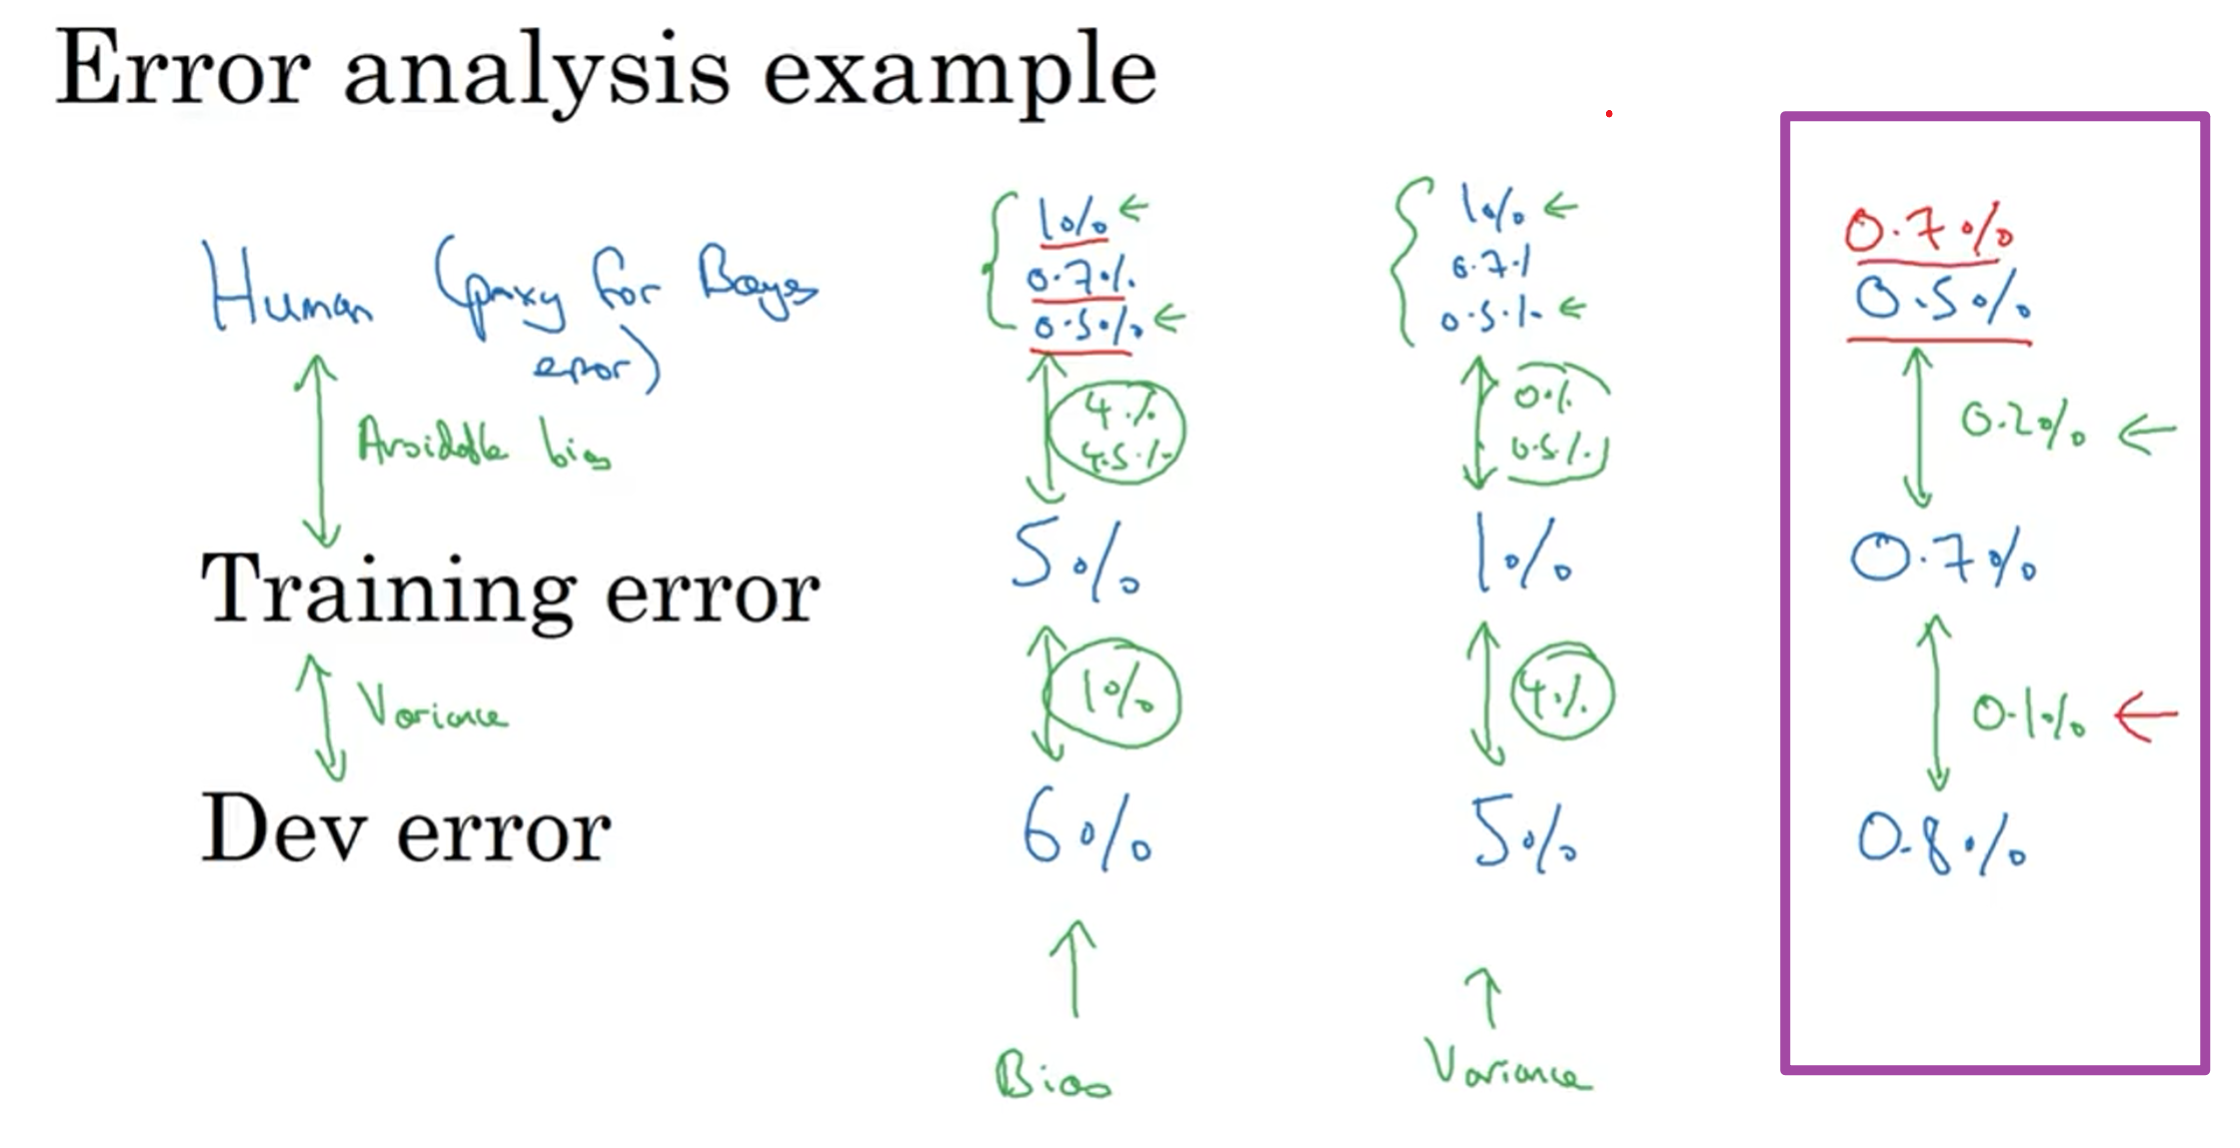 Error analysis example
Human (proxy for Bayes
error)
Avoidable bias
Training error
Variance
Dev error
1%
0.7%
0.5%
4%
4.5%
5%
1%
6%
Bias
1%
0.7%
0.5%
0%
0.5%
1%
4%
5%
Variance
0.7%
0.5%
0.2%
0.7%
0.1%
0.8%